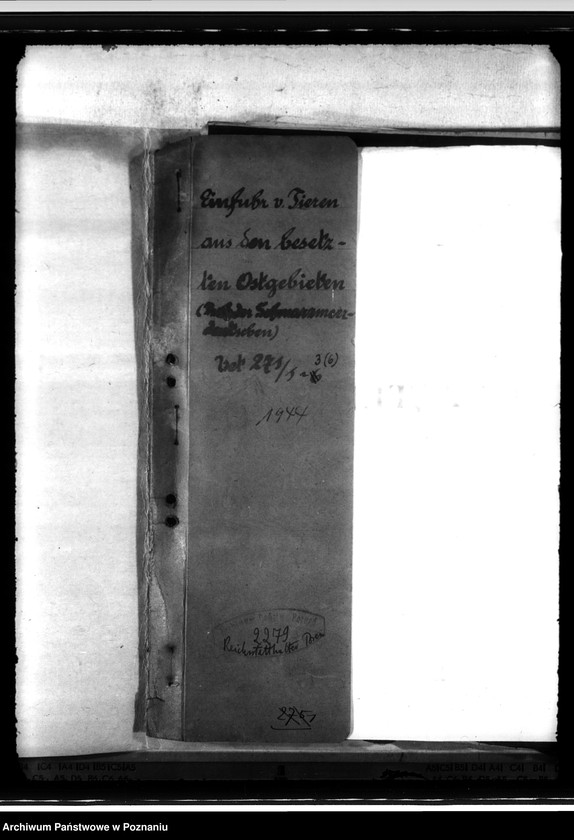 Einfuhr v. Tieren
aus den besetz-
ten Ostgebieten
(Pferde der Schwarzmeer-
deutschen)
Vet 271/5 3(6)
1944
2279
Reichsstatthalter Posen
Archiwum Państwowe w Poznaniu